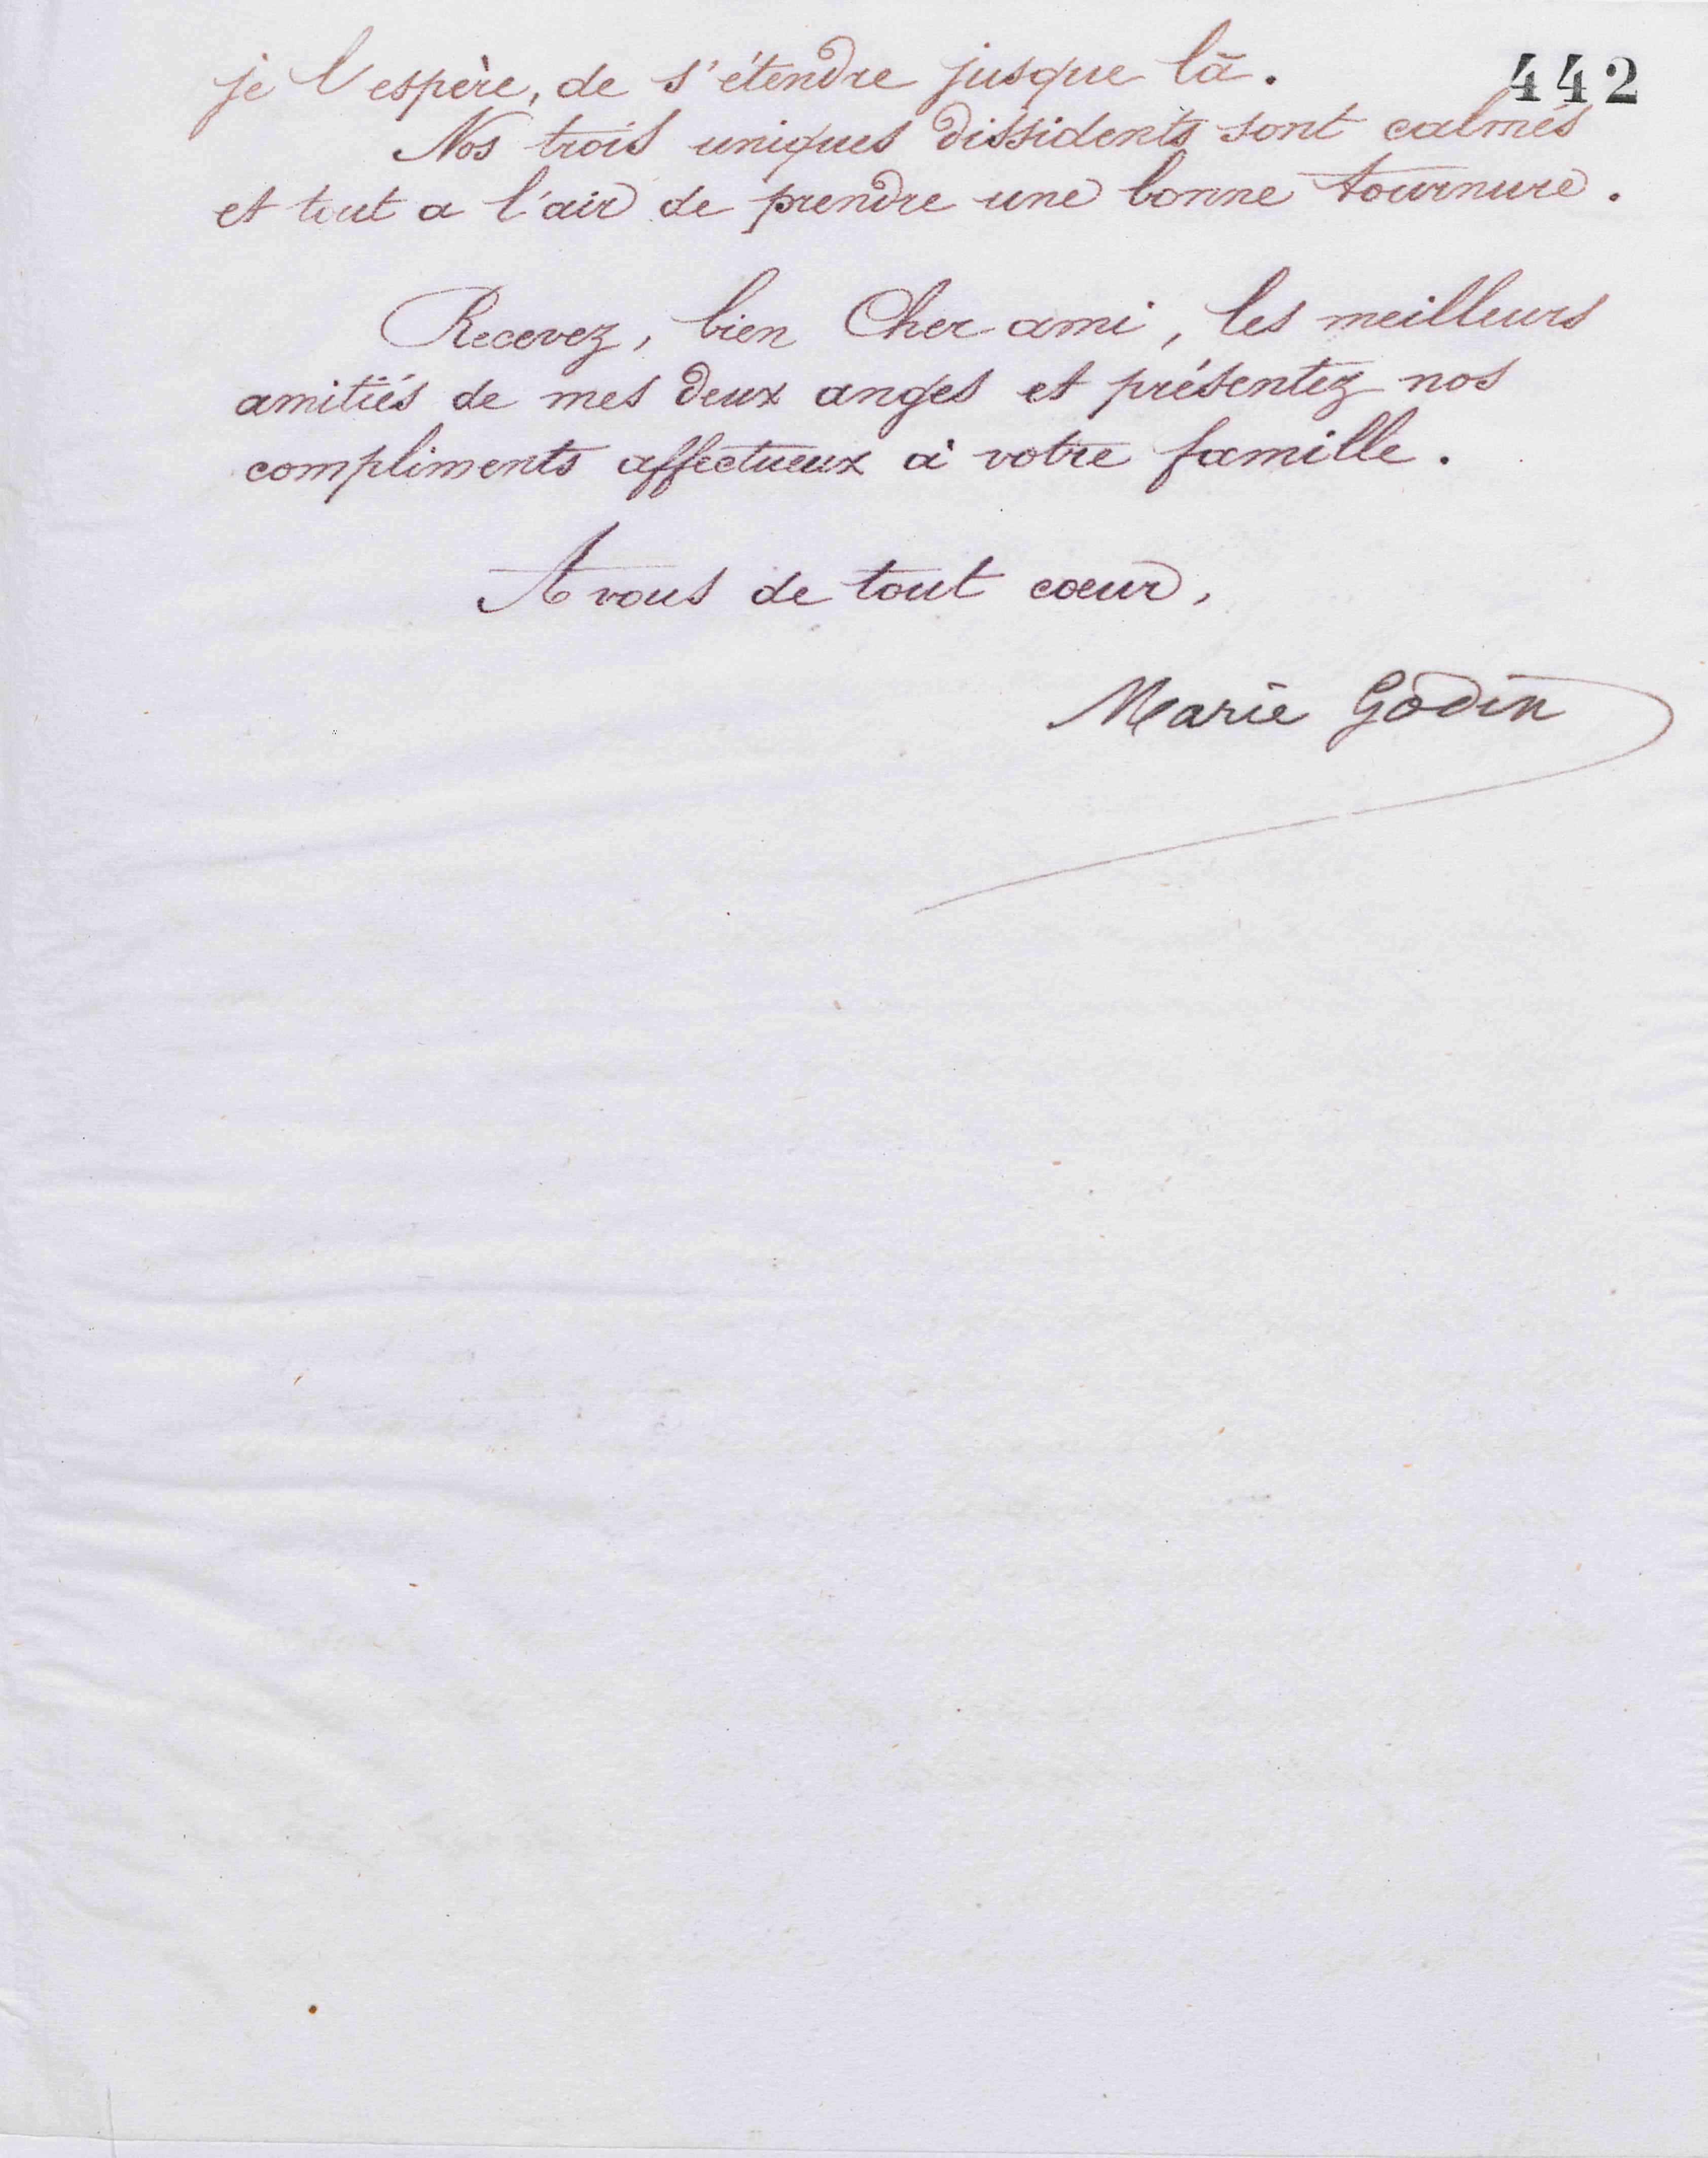 442
je l'espère, de s'étendre jusque là.
Nos trois uniques dissidents sont calmés
et tout a l'air de prendre une bonne tournure.
Recevez, bien Cher ami, les meilleurs
amitiés de mes deux anges et présentez nos
compliments affectueux à votre famille.
A vous de tout cœur,
Marie Godin